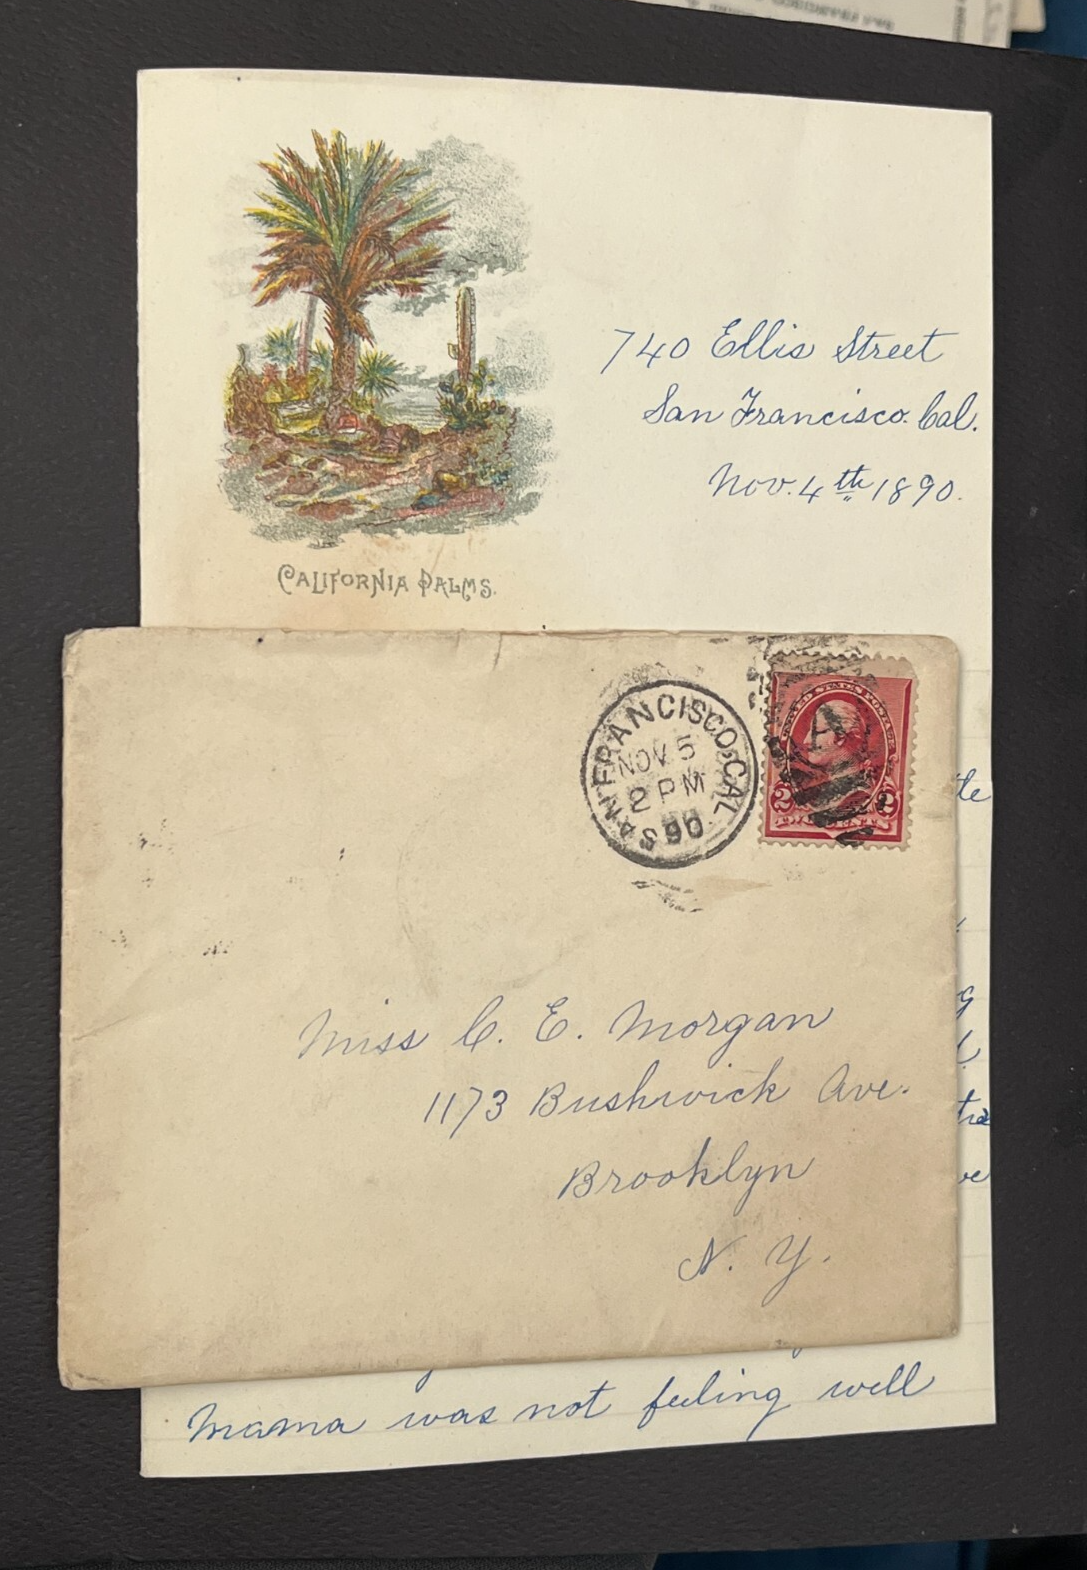 740 Ellis Street
San Francisco. Cal.
Nov. 4th 1890.
CALIFORNIA PALMS.
SAN FRANCISCO, CAL.
NOV 5
2 PM
90
UNITED STATES POSTAGE
A
2 2
Miss C. E. Morgan
1173 Bushwick Ave.
Brooklyn
N. Y.
Mama was not feeling well